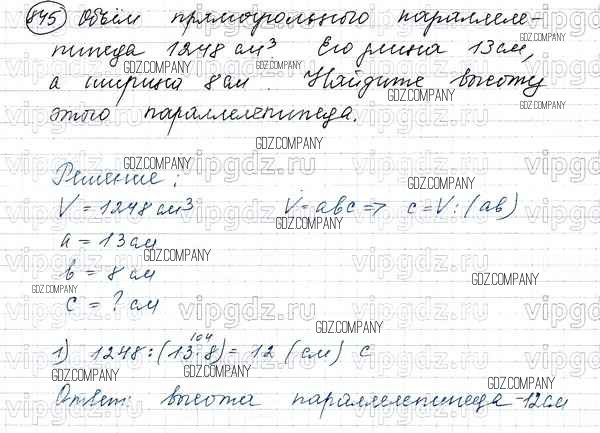 845 Объём прямоугольного параллеле-
пипеда 1248 см³ Его длина 13 см,
GDZ.COMPANY GDZ.COMPANY GDZ.COMPANY
а ширина 8 см. Найдите высоту
GDZ.COMPANY GDZ.COMPANY
этого параллелепипеда.
vipgdz.ru vipgdz.ru vipgdz.ru
GDZ.COMPANY
vipgdz.ru vipgdz.ru vipgdz.ru
GDZ.COMPANY
Решение:
GDZ.COMPANY
V = 1248 см³ V = abc => c = V : (ab)
GDZ.COMPANY
a = 13 см
GDZ.COMPANY
b = 8 см
GDZ.COMPANY
GDZ.COMPANY
c = ? см
vipgdz.ru vipgdz.ru vipgdz.ru
GDZ.COMPANY
104
1) 1248 : (13·8) = 12 (см) c
GDZ.COMPANY GDZ.COMPANY GDZ.COMPANY
Ответ: высота параллелепипеда - 12 см
vipgdz.ru vipgdz.ru vipgdz.ru